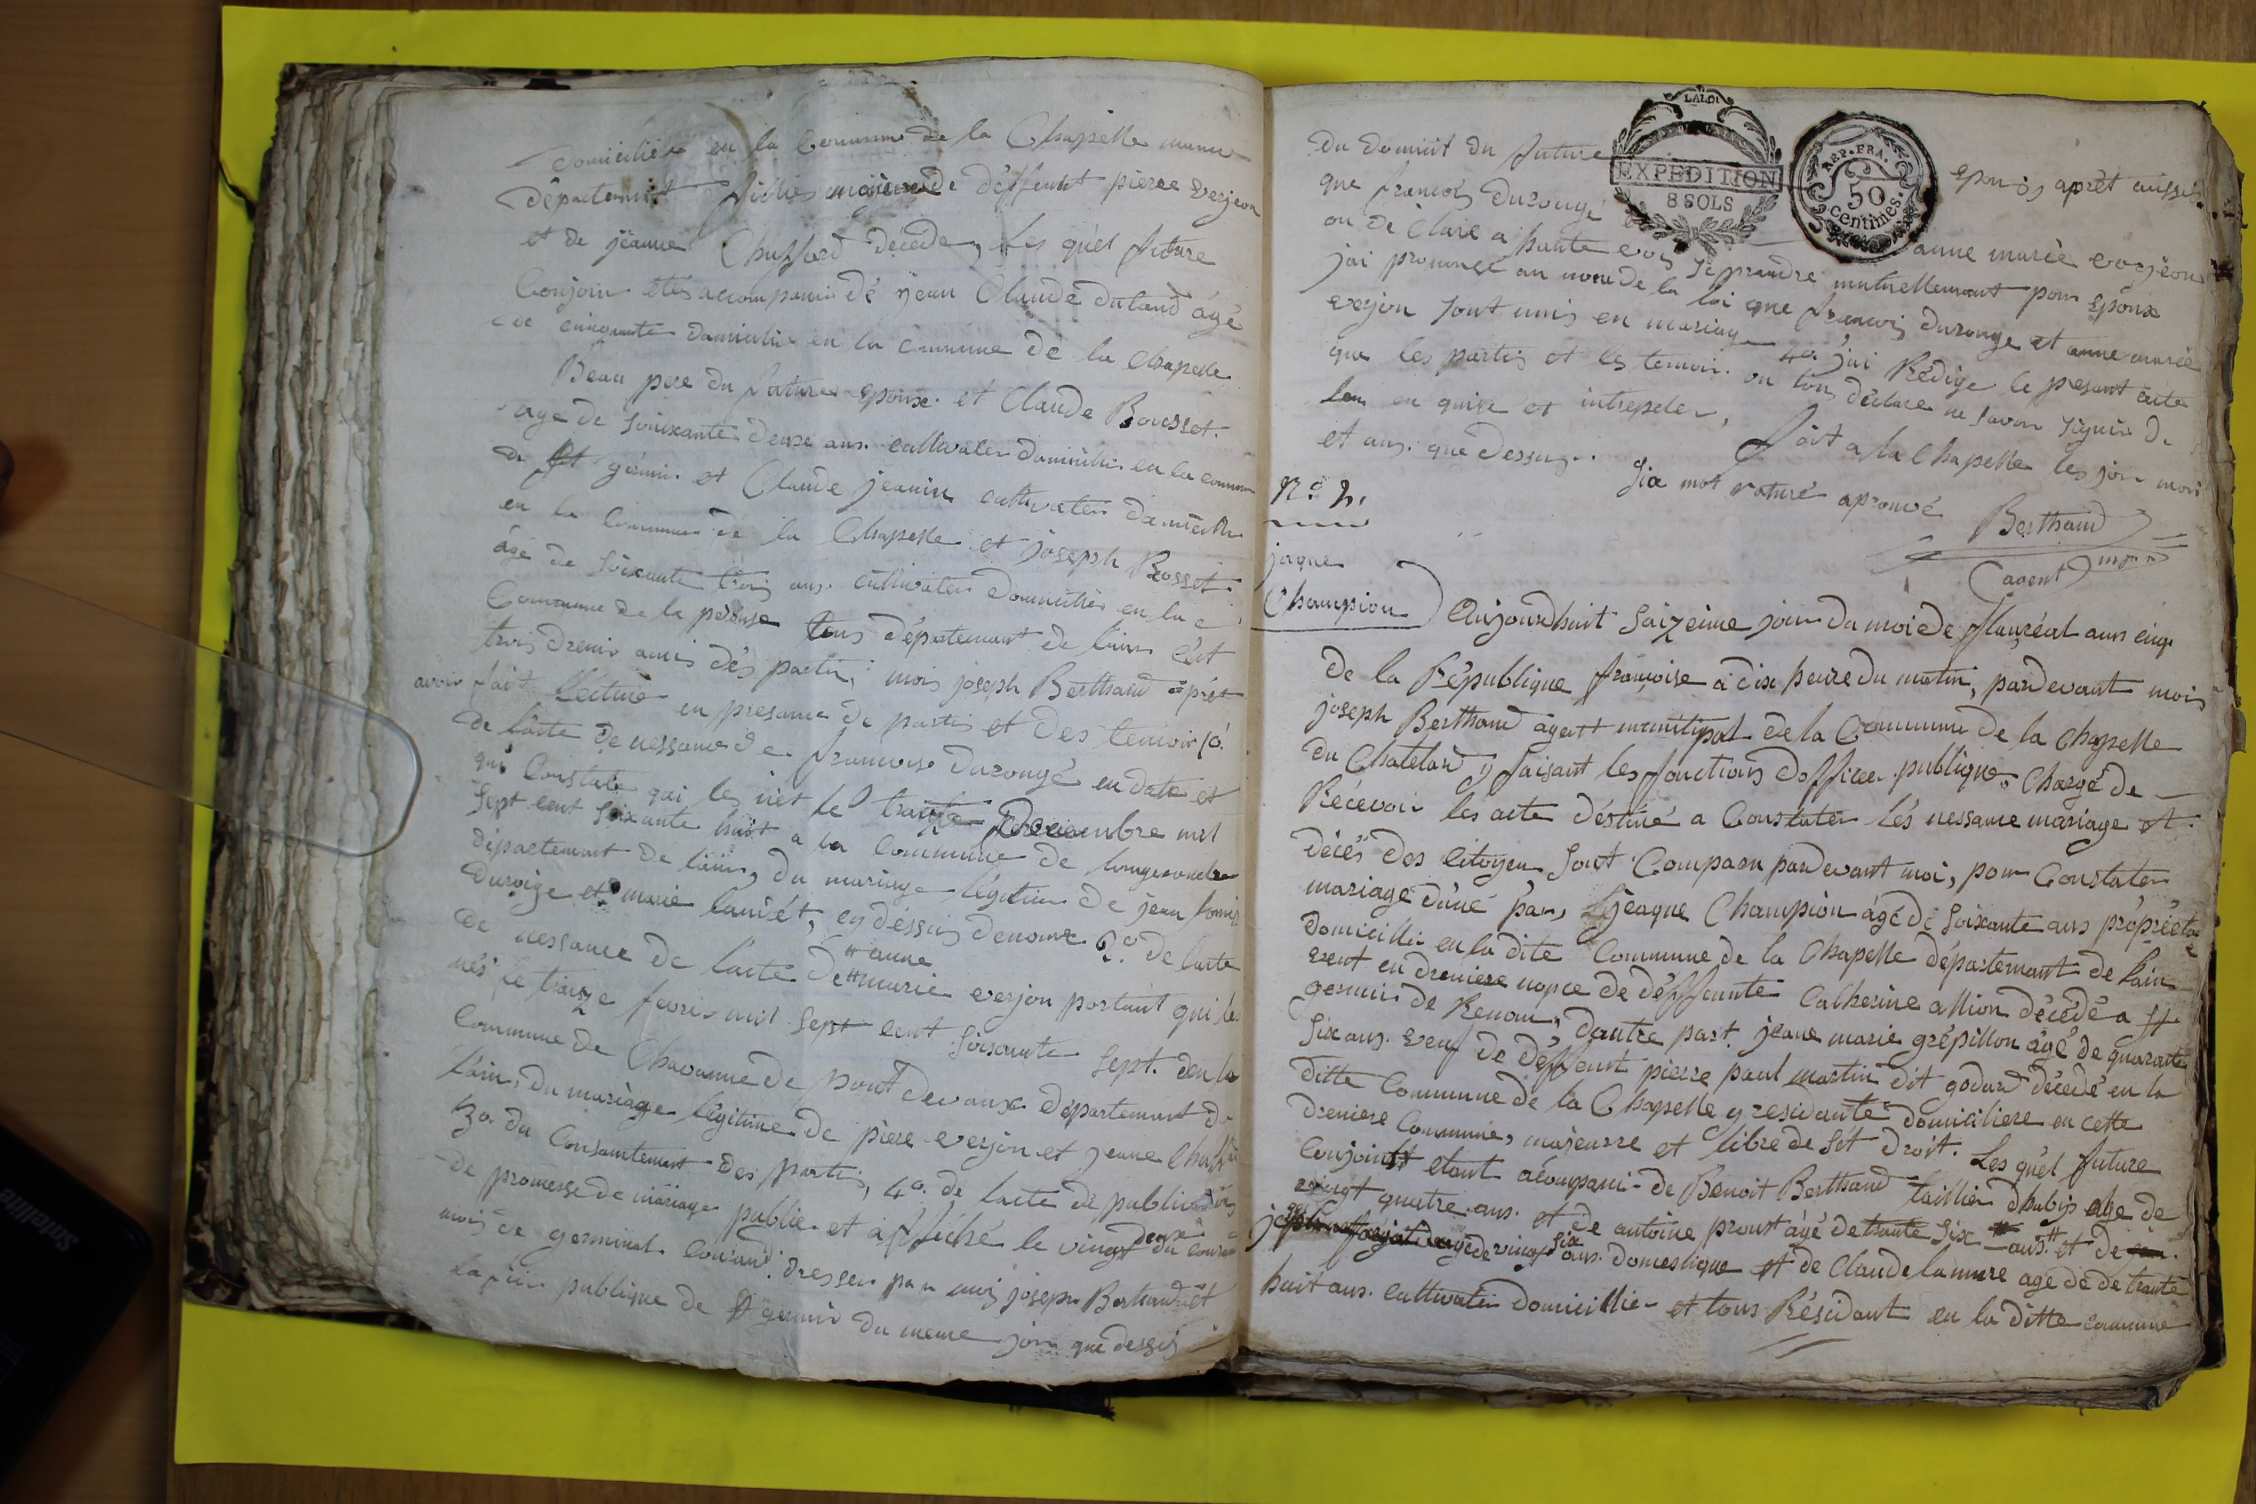 domiciliée en la Commune de la Chapelle mume
département fillies majeure de déffunt pierre verjeon
et de jéanne Chuffard décédé, les quel future
Conjoin etes accompanié dé jean Claude dutaud agé
de cinquante domicilié en la commune de la Chapelle
Beau pere du future epouxe et Claude Bousset
age de Soixante deuxe ans cultivater domicilie en la commun
de st génis et Claude jeanin cultivater domicilie
en la Commune de la Chapelle et joseph Rosset
âgé de Soixante trois ans cultivater domicilié en la
Commune de la pérouse tous département de l'ain cet
trois drenier amis dés partie, mois joseph Berthaud aprêt
avoir fait lecture en presance de partis et des temoin 1º
de l'acte de nessance de francois durougé en date et
qui Constate qui les néet le traize Decembre mil
sept cent soixante huit a la Commune de longevandre
département de l'ain, du mariage légitime de jean
durouge et marie, cy déssus denomé 2º de l'acte
de nessance de l'acte de marie verjon portant qui lé
anne
nés le traize fevrie mil sept cent soisante sept. den la
Commune de Chavanne de pont devaux département de
l'ain, du mariage légitime de piere verjon et jeanne
3º du Consantement des partis, 4º de l'acte de publication
de promesse de mariage publie et afféché le vingt deux du courant
mois de germinal dresser par mois joseph Berthaud et
publique de st genis du meme jour que dessus
du domicit du future epouxs aprét aussis
que francois durougé et anne marie verjeon
on de Clare a haute vois se prandre mutuellemant pour époux
jai prononcé au nom de la loi que francois durouge et anne marie
verjon sont unis en mariage 4º j'ai Rédige le presant acte
que les partis et les temoin on ton déclare ne savoir signer de
leur en quise et interpeler, fait a la Chapelle les jour mois
et ans que dessus.
Six mot raturé aprouvé
Berthaud
agent
LALOI
EXPEDITION
8 SOLS
REP. FRA.
50
centimes.
Nº 2.
jaque
Champion
Aujourdhuit Saizeime jour du moi de flauréal ans cinq
de la République françoise a dix heure du matin, pardevant mois
joseph Berthaud agent municipal de la Commune de la Chapelle
du Chatelard, faisant les fonctions d'officer publique, Chargé de
Récevoir les acte déstiné a Constater lés nessance mariage et
décés des Citoyen Sont Comparu pardevant moi, pour Constater
mariage d'une par, Jeaque Champion âgé de soixante ans propriétaire
domicillie en la dite Commune de la Chapelle départemant de l'ain
veuf en dreniere nopce de déffunte Catherine allion décédé a st
germis de Renom, dautre part. jeane marie grépillon âgé de quarante
six ans. veuf de déffunt pierre paul martin dit godard décédé en la
ditte Commune de la Chapelle y residante domiciliere en cette
dreniere Commune, majeurre et libre de sét droit. Les quél future
Conjoint etant acoupani de Benoit Berthaud taillier dhabis age de
vingt quatre ans et de antoine proust agé de trante six ans et de
age de vingt six ans domestique et de Claude lamure age de de trante
huit ans cultivater domicillie et tous Résidant en la ditte commune